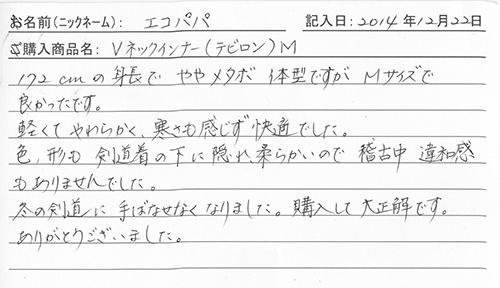 お名前(ニックネーム): エコパパ 記入日: 2014年12月22日
ご購入商品名: Vネックインナー(テビロン)M
172cmの身長で ややメタボ 体型ですが Mサイズで
良かったです。
軽くて やわらかく、寒さも感じず 快適でした。
色、形も 剣道着の下に隠れ、柔らかいので 稽古中 違和感
もありませんでした。
冬の剣道に 手ばなせなくなりました。購入して 大正解です。
ありがとうございました。